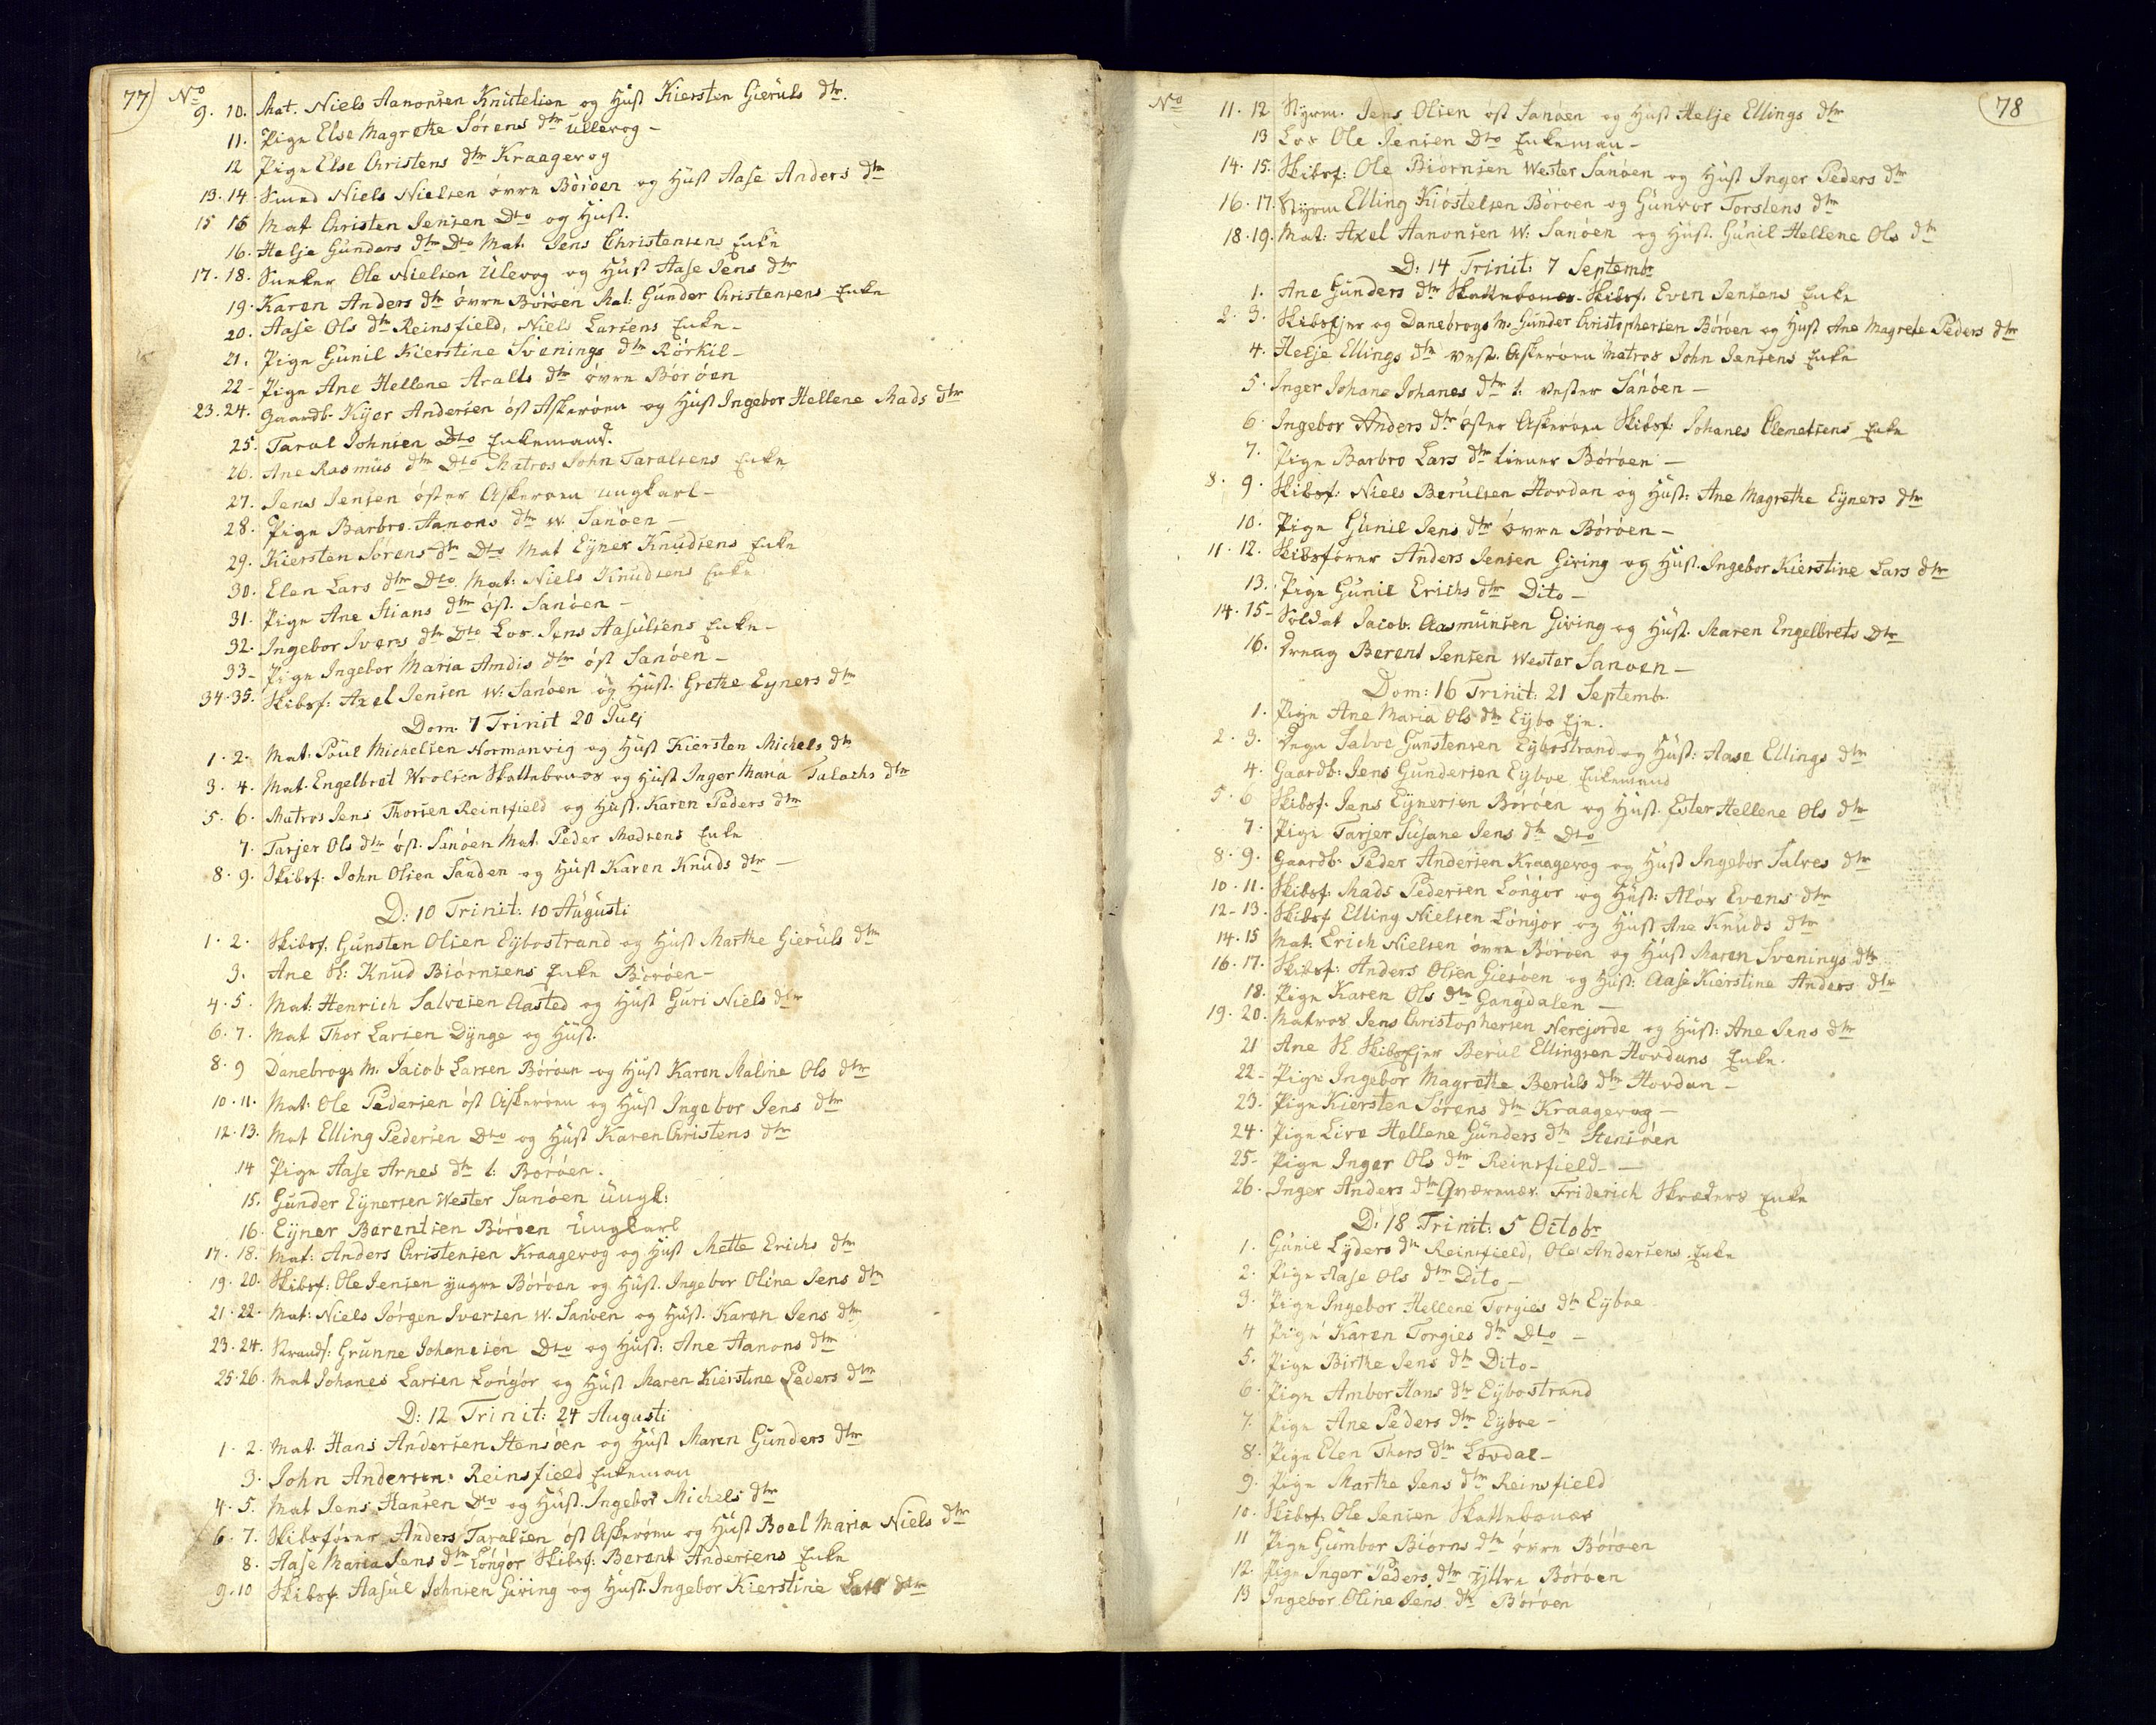 77) No
9. 10. Mat. Niels Aanonsen Knittelien og Hust Kiersten Gieruls dtr.
11. Pige Else Magrethe Sörens dtr Ullevog -
12 Pige Else Christens dtr Kraagevog
13. 14. Smed Niels Nielsen övre Böröen og Hust Aase Anders dtr
15 16 Mat Christen Jensen Dto og Hust.
16. Helje Gunders dtr Dto Mat: Jens Christensens Enke
17. 18. Ole Nielsen Ulevog og Hust Aase Jens dtr
19. Karen Anders dtr övre Böröen Mat: Gunder Christensens Enke
20. Aase Ols dtr Reinsfield, Niels Larsens Enke -
21. Pige Gunil Kierstine Svenings dtr Rörkil -
22 - Pige Ane Hellene Aralts dtr övre Böröen
23. 24. Gaardb. Kijer Andersen öst Askeröen og Hust Ingebor Hellene Mads dtr
25. Taral Johnsen Dto Enkemand.
26. Ane Rasmus dtr Dto Matros John Taralsens Enke
27. Jens Jensen öster Askeröen ungkarl -
28. Pige Barbro Aanons dtr W. Sanöen -
29. Kiersten Sörens dtr Dto Mat Eyner Knudsens Enke
30. Elen Lars dtr Dto. Mat: Niels Knudsens Enke
31. Pige Ane Stians dtr öst. Sanöen -
32. Ingebor Ivers dtr Dto Los. Jens Aasulsens Enke -
33 - Pige Ingebor Maria Amdis dtr öst Sanöen -
34. 35. Skibsf: Axel Jensen W: Sanöen og Hust. Grethe Eyners dtr
Dom. 7 Trinit 20 Julj
1. 2. Mat: Poul Michelsen Normanvig og Hust Kiersten Michels dtr
3. 4. Mat. Engelbret Wrolsen Skattebouas og Hust Inger Maria Talachs dtr
5. 6. Matros Jens Thorsen Reinsfield og Hust. Karen Peders dtr
7. Tarjer Ols dtr öst. Sanöen Mat. Peder Madsens Enke
8. 9. Skibsf: John Olsen Sanden og Hust Karen Knuds dtr -
D: 10 Trinit: 10 Augusti
1. 2. Skibsf. Gunsten Olsen Eybostrand og Hust Marthe Gieruls dtr
3. Ane Sl: Knud Biörnsens Enke Böröen -
4. 5. Mat: Henrich Salvesen Aasted og Hust Guri Niels dtr
6. 7. Mat Thor Larsen Dynge og Hust.
8. 9 Danebrogs M. Jacob Larsen Böröen og Hust Karen Maline Ols dtr
10. 11. Mat: Ole Pedersen öst Askeröen og Hust Ingebor Jens dtr
12. 13. Mat Elling Pedersen Dto og Hust Karen Christens dtr
14 Pige Aase Arnes dtr l: Böröen.
15. Gunder Eynersen Wester Sanöen Ungk:
16. Eyner Berentsen Böröen Ungkarl
17. 18. Mat: Anders Christensen Kraagevog og Hust Mette Erichs dtr
19. 20. Skibsf: Ole Jensen yngre Böröen og Hust. Ingebor Oline Jens dtr
21. 22. Mat: Niels Jörgen Iversen W. Sanöen og Hust. Karen Jens dtr
23. 24. Strands: Grunne Johanesen Dto og Hust: Ane Aanons dtr
25. 26. Mat Johanes Larsen Longör og Hust Maren Kierstine Peders dtr
D: 12 Trinit: 24 Augusti
1. 2. Mat. Hans Andersen Stensöen og Hust Maren Gunders dtr
3. John Andersen. Reinsfield Enkeman
4. 5. Mat Jens Hansen Dto og Hust. Ingebor Michels dtr
6. 7. Skibsförer Anders Taralsen öst Askeröen og Hust Boel Maria Niels dtr
8. Aase Maria Jens dtr Longör Skibsf: Berent Andersens Enke
9. 10 Skibsf. Aasul Johnsen Giving og Hust. Ingebor Kierstine Lars dtr
No 78
11. 12 Styrm. Jens Olsen öst Sanöen og Hust Helje Ellings dtr
13 Los Ole Jensen Dto Enkeman -
14. 15. Skibsf: Ole Biörnsen Wester Sanöen og Hust Inger Peders dtr
16. 17. Styrm Elling Kiöstelsen Böröen og Gunvor Torstens dtr
18. 19. Mat: Axel Aanonsen W: Sanöen og Hust. Gunil Hellene Ols dtr
D: 14 Trinit: 7 Septembr
1. Ane Gunders dtr Skattebouas - Skibsf. Even Jensens Enke
2. 3. Skibsejer og Danebrogs M. Gunder Christophersen Böröen og Hust Ane Magrete Peders dtr
4. Helje Ellings dtr vest. Askeröen Matros John Jensens Enke
5. Inger Johane Johanes dtr l. vester Sanöen -
6. Ingebor Anders dtr öster Askeröen Skibsf: Johanes Clemetsens Enke
7. Pige Barbro Lars dtr tiener Böröen -
8. 9. Skibsf: Niels Berulsen Hovdan og Hust: Ane Magrethe Eyners dtr
10. Pige Gunil Jens dtr övre Böröen -
11. 12. Skibsförer Anders Jensen Giving og Hust. Ingebor Kierstine Lars dtr
13. Pige Gunil Erichs dtr Dito -
14. 15 - Soldat Jacob Aasmunsen Giving og Hust. Maren Engelbrets Dtr
16. Dreng Berent Jensen Wester Sanöen -
Dom: 16 Trinit: 21 Septembr.
1. Pige Ane Maria Ols dtr Eybo Eje.
2. 3. Salve Gunstensen Eybostrand og Hust: Aase Ellings dtr
4. Gaardb: Jens Gundersen Eyboe Enkemand
5. 6 Skibsf. Jens Eynersen Böröen og Hust. Ester Hellene Ols dtr
7. Pige Tarjer Susane Jens dtr Dto
8. 9. Gaardb: Peder Andersen Kraagevog og Hust Ingebor Salves dtr
10. 11. Skibsf: Mads Pedersen Longör og Hust: Alör Evens dtr
12 - 13. Skibsf Elling Nielsen Longör og Hust Ane Knuds dtr
14. 15 Mat: Erich Nielsen övre Böröen og Hust Maren Svenings dtr
16. 17. Skibsf: Anders Olsen Giesöen og Hust: Aase Kierstine Anders dtr
18. Pige Karen Ols dtr Gangdalen -
19. 20. Matros Jens Christophersen Nerejorde og Hust: Ane Jens dtr
21 Ane Sl. Skibsejer Berul Ellingsen Hovdans Enke.
22 - Pige Ingebor Magrethe Beruls dtr Hovdan -
23. Pige Kiersten Sörens dtr Kraagevog -
24. Pige Live Hellene Gunders dtr Stensöen
25 - Pige Inger Ols dtr Reinsfield - -
26. Inger Anders dtr Qværnnæs. Friderich Skræders Enke
D: 18 Trinit: 5 Octobr
1. Gunil Lyders dtr Reinsfield, Ole Andersens Enke
2. Pige Aase Ols dtr Dito -
3. Pige Ingebor Hellene Torgies dtr Eyboe
4 Pige Karen Torgies dtr Dto -
5. Pige Birthe Jens dtr Dito -
6. Pige Ambor Hans dtr Eybostrand
7. Pige Ane Peders dtr Eyboe -
8. Pige Elen Thors dtr Lövdal -
9. Pige Marthe Jens dtr Reinsfield
10. Skibsf: Ole Jensen Skattebouas
11 Pige Gumbor Biörns dtr övre Böröen
12. Pige Inger Peders dtr Yttre Böröen
13 Ingebor Oline Jens dtr Böröen